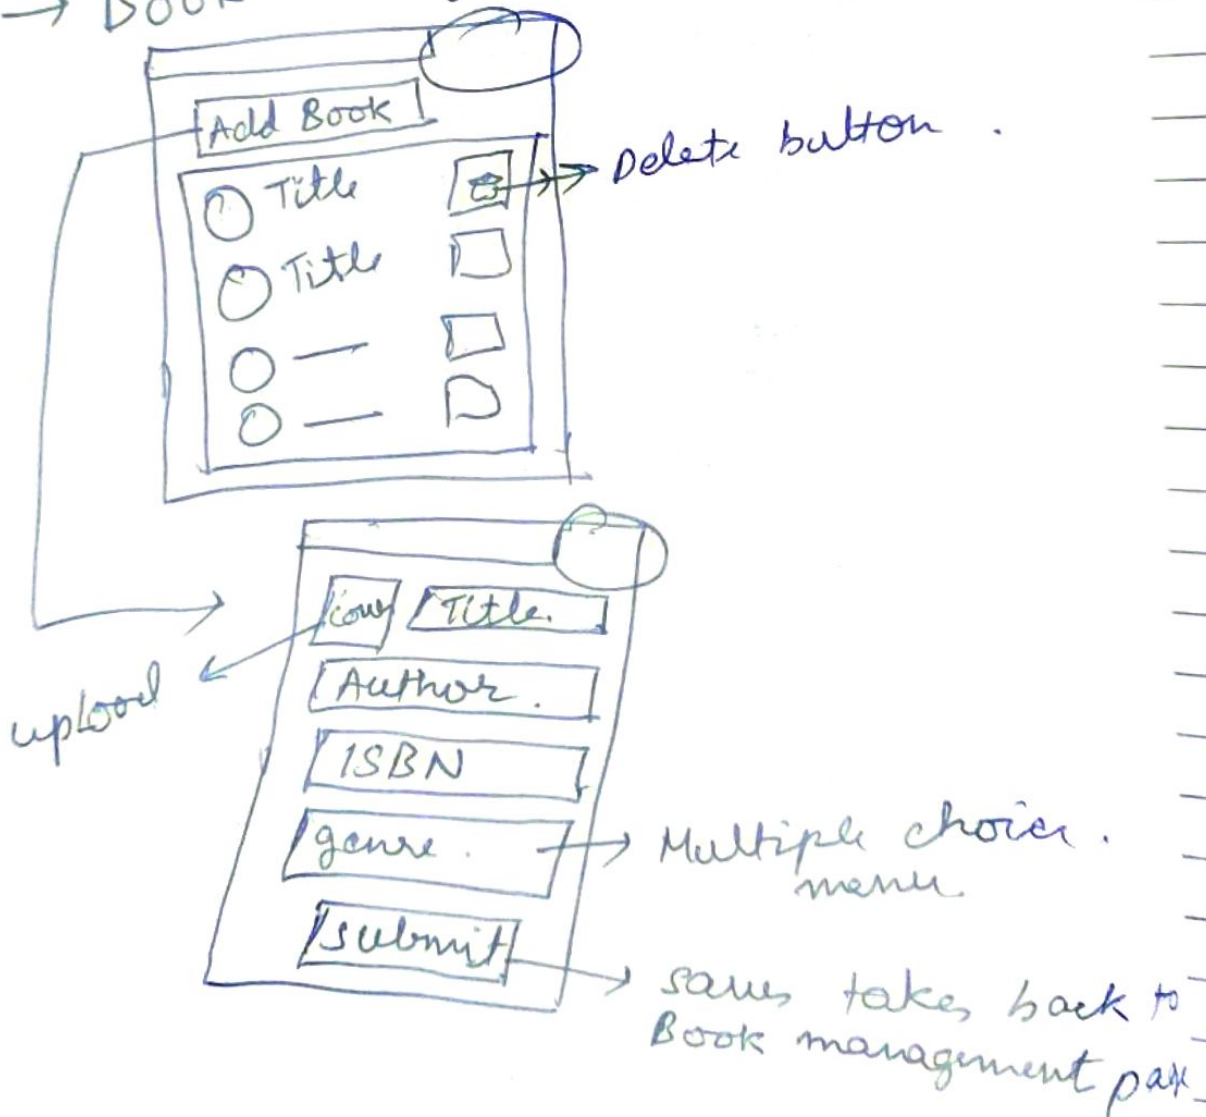 → Book
Add Book
Title
Delete button .
Title
cover
Title.
Author .
upload
ISBN
genre .
Multiple choice .
menu.
submit
saves takes back to
Book management page